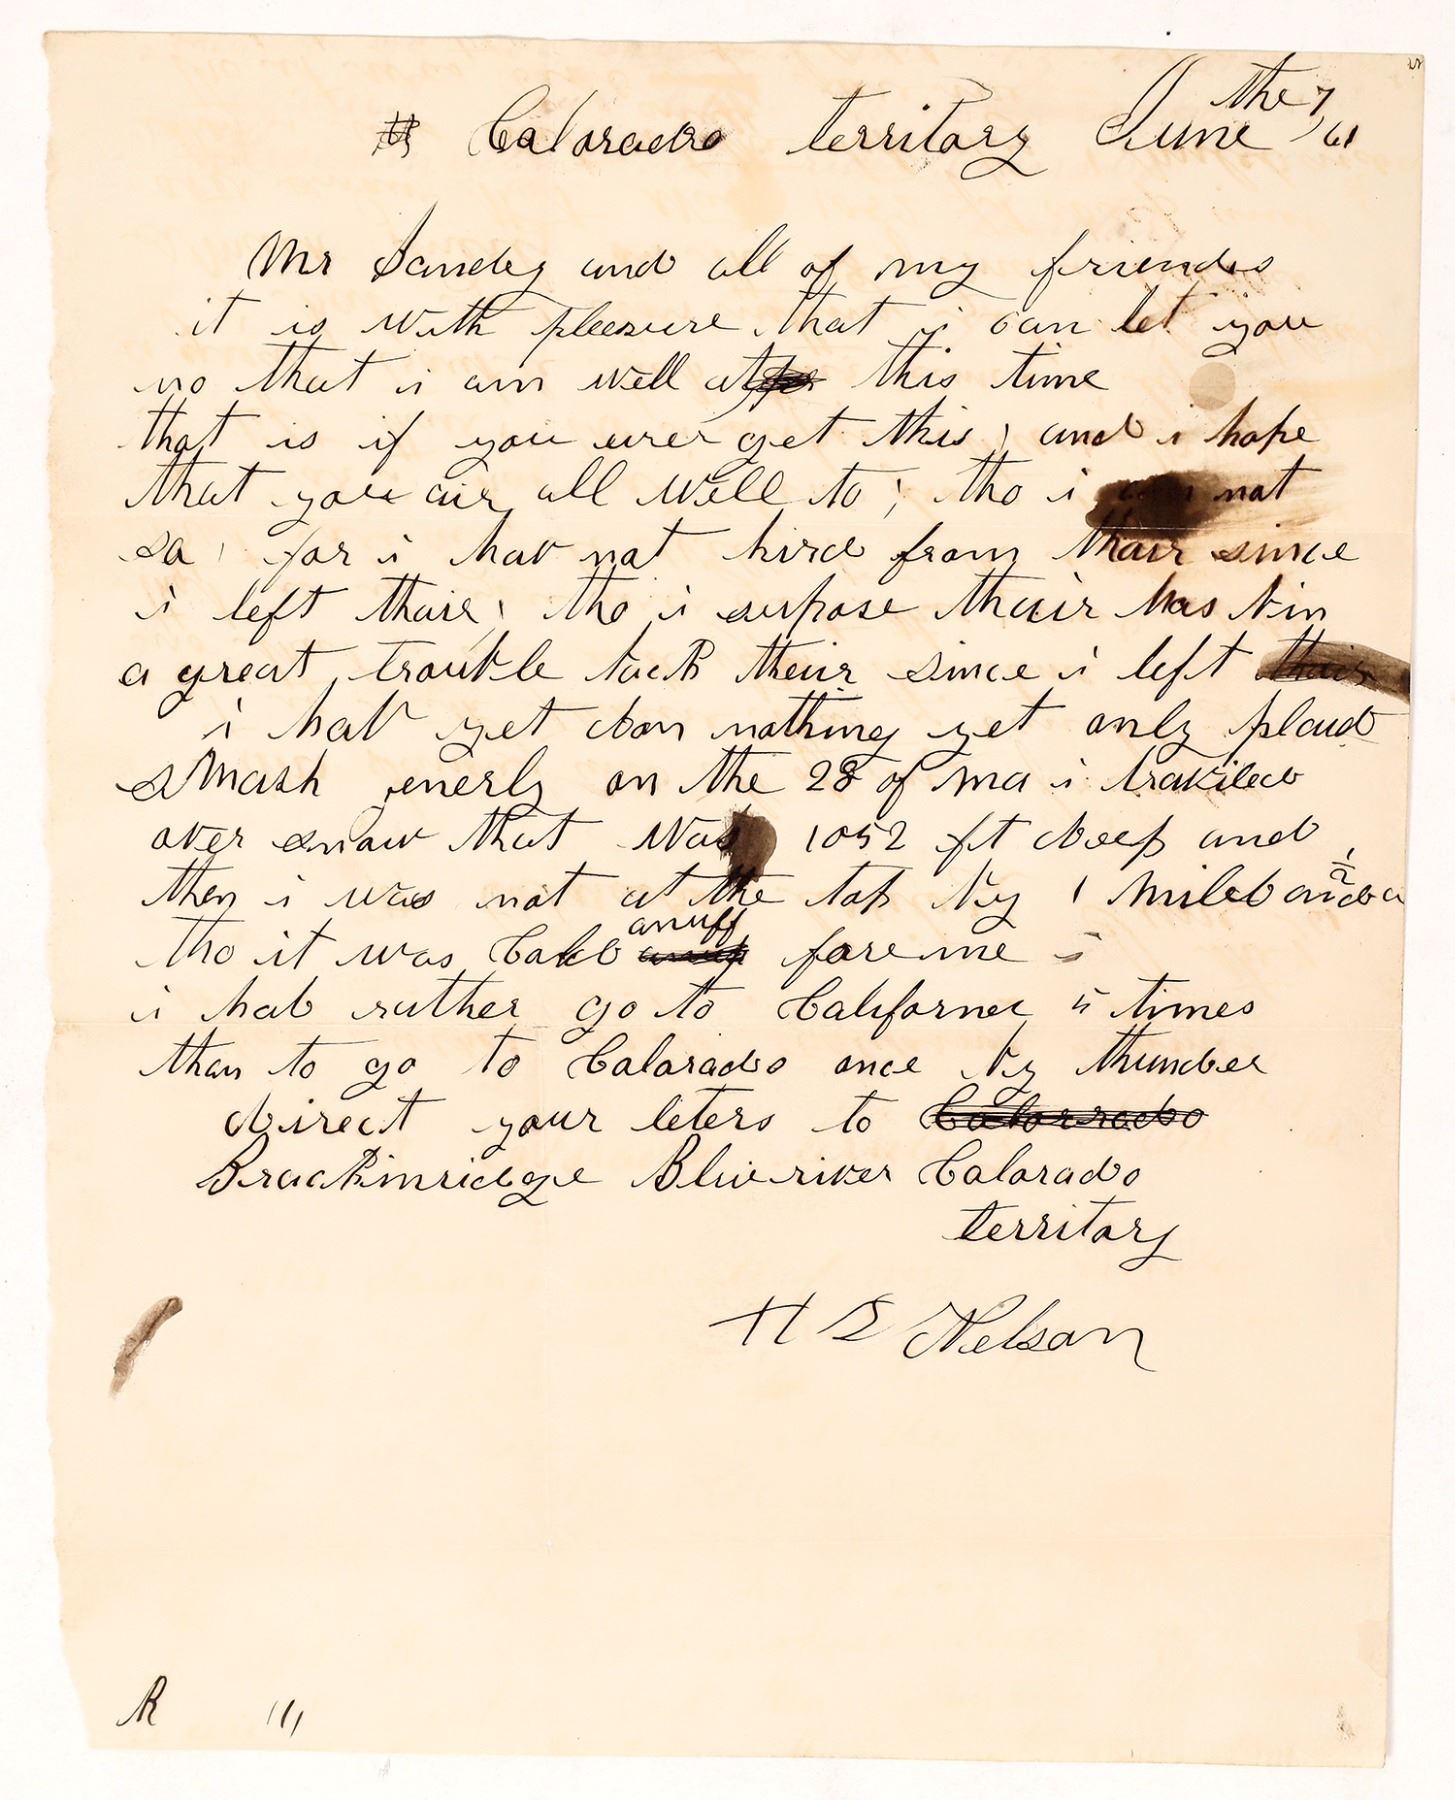 Colorado territory June the 7 /61
Mr Sandey and all of my friends
it is with pleesure that i can let you
no that i am well at this time
that is if you ever get this ; and i hope
that you air all well to ; tho i am not
so ; for i hav not hird from thair since
i left thair ; tho i supose thair has bin
a great trouble back their since i left thair
i hav yet don nothing yet only plaid
smash enerly on the 28 of ma i traviled
over snow that was 1052 ft deep and
then i was not at the top by 1 mile and a 1/2
tho it was Cold anuff fore me i
i had ruther go to California 5 times
than to go to Colorado once by thunder
direct your leters to Colorrado
Brackinridge Blue river Colorado
territory
H S Nelson
R 111